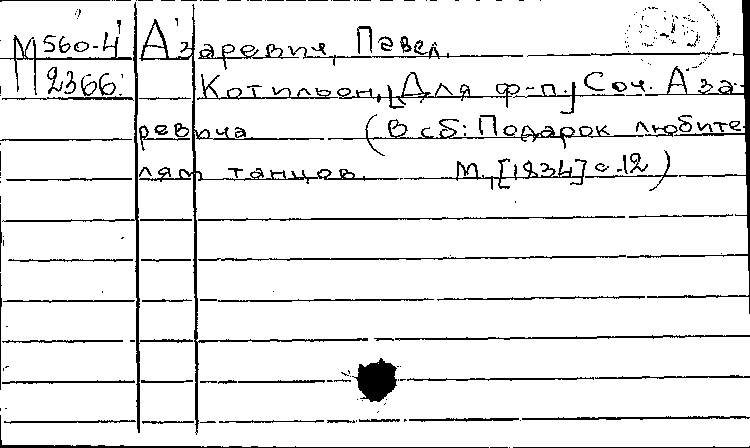 М 560-4 Азаревич, Павел.
2366 Котильон, [Для ф-п.] Соч. Аза-
ревича (В сб: Подарок любите-
лям танцов. М., [1834] с.12)